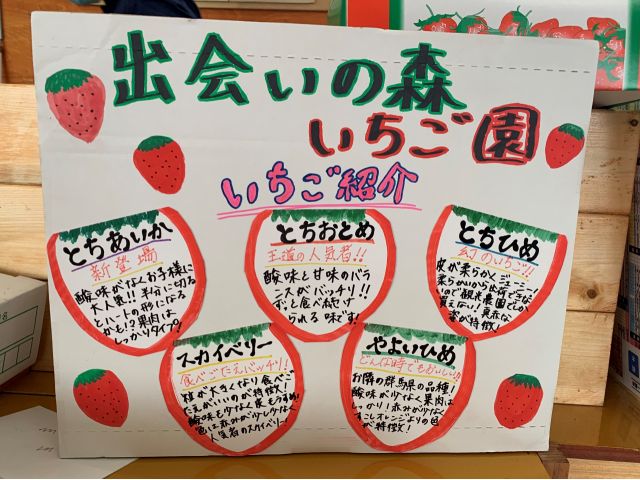 出会いの森
いちご園
いちご紹介
とちあいか
新登場
酸味が少なくお子様に
大人気!!半分に切る
とハートの形になる
かも!?果肉は
しっかりタイプ!
とちおとめ
王道の人気者!!
酸味と甘味のバラ
ンスがバッチリ!!
ずっと食べ続け
られる味です!
とちひめ
幻のいちご!!
皮が柔らかくジューシー!
柔らかいから出荷できな
いので観光農園でしか
買えない!真っ赤な
姿が特徴!
スカイベリー
食べごたえバッチリ!!
粒が大きくなり食べご
たえがいいのが特徴!
酸味も少なく皮もうすめ!
色は赤みが少し少なく
人気者のスカイベリー!
やよいひめ
どんな時でもおいしい!!
お隣の群馬県の品種!
酸味が少なく果肉は
しっかり!赤みが少なく
すこしオレンジよりの色
が特徴!